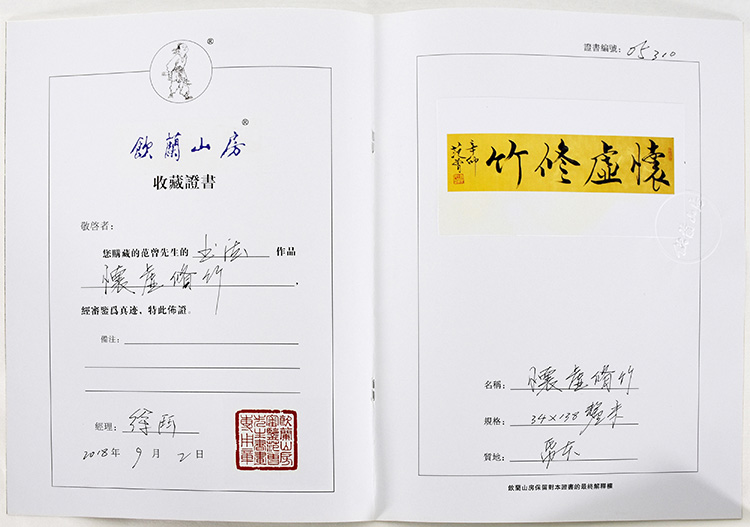 ®
飲蘭山房®
收藏證書
敬啓者：
您購藏的范曾先生的书法作品
懷虛脩竹，
經審鑒爲真迹，特此佈證。
備注：
經理：
2018年9月2日
飲蘭山房
審鑒范曾
先生書畫
專用章
證書編號：05310
懷虛修竹
辛卯
范曾
名稱：懷虛脩竹
規格：34×138釐米
質地：
飲蘭山房保留對本證書的最終解釋權